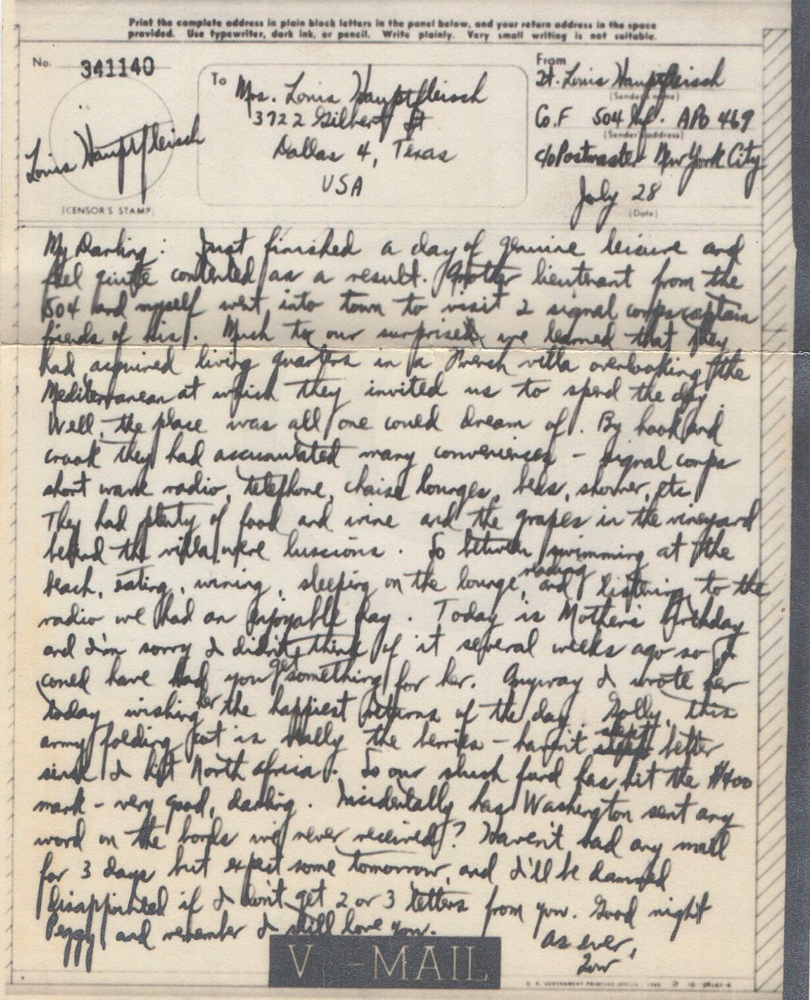 Print the complete address in plain block letters in the panel below, and your return address in the space
provided. Use typewriter, dark ink, or pencil. Write plainly. Very small writing is not suitable.
No. 341140
Louis Hauptfleisch
(CENSOR'S STAMP)
To Mrs. Louis Hauptfleisch
3722 Gilbert St
Dallas 4, Texas
USA
From
Lt. Louis Hauptfleisch
(Sender's name)
Co. F 504 Inf. APO 469
(Sender's address)
c/o Postmaster New York City
July 28
(Date)
My Darling: Just finished a day of genuine leisure and
feel quite contented as a result. Another lieutenant from the
504 and myself went into town to visit 2 signal corps captain
friends of his. Much to our surprise, we learned that they
had acquired living quarters in a French villa overlooking the
Mediterranean at which they invited us to spend the day.
Well, the place was all one could dream of. By hook and
crook they had accumulated many conveniences - signal corps
short wave radio, telephone, chaise lounges, beds, shower, etc.
They had plenty of food and wine and the grapes in the vineyard
behind the villa were luscious. So between swimming at the
beach, eating, wining, sleeping on the lounge, reading and listening to the
radio we had an enjoyable day. Today is Mother's birthday
and I'm sorry I didn't think of it several weeks ago so I
could have had you get something for her. Anyway I wrote her
today wishing her the happiest returns of the day. Golly, this
army folding cot is really the berries - haven't slept better
since I hit North Africa. So our slush fund has hit the $400
mark - very good, darling. Incidentally has Washington sent any
word on the bonds we never received? Haven't had any mail
for 3 days but expect some tomorrow, and I'll be damned
disappointed if I don't get 2 or 3 letters from you. Good night
Peggy and remember I still love you.
As ever,
Lou
V-MAIL